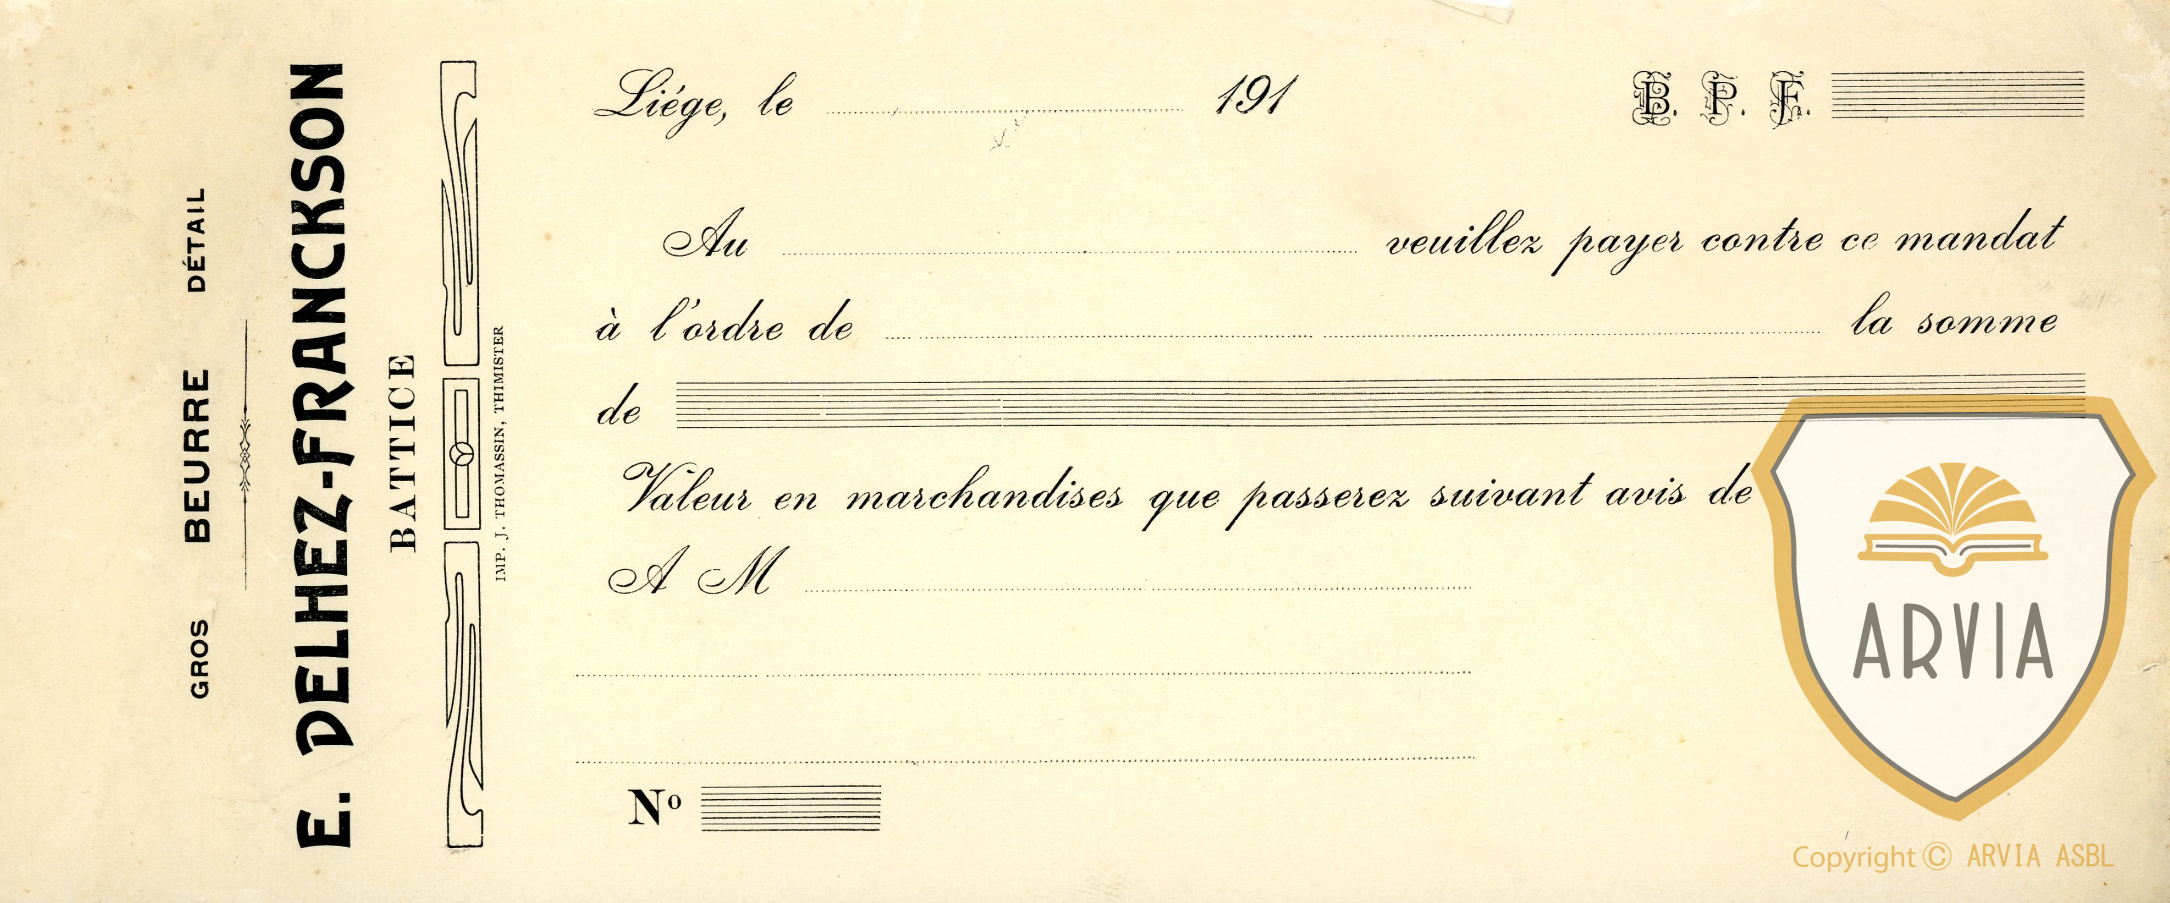 GROS BEURRE DÉTAIL
E. DELHEZ-FRANCKSON
BATTICE
IMP. J. THOMASSIN, THIMISTER
Liége, le 191
B. P. F.
Au veuillez payer contre ce mandat
à l'ordre de la somme
de
Valeur en marchandises que passerez suivant avis de
A M
Nº
ARVIA
Copyright © ARVIA ASBL